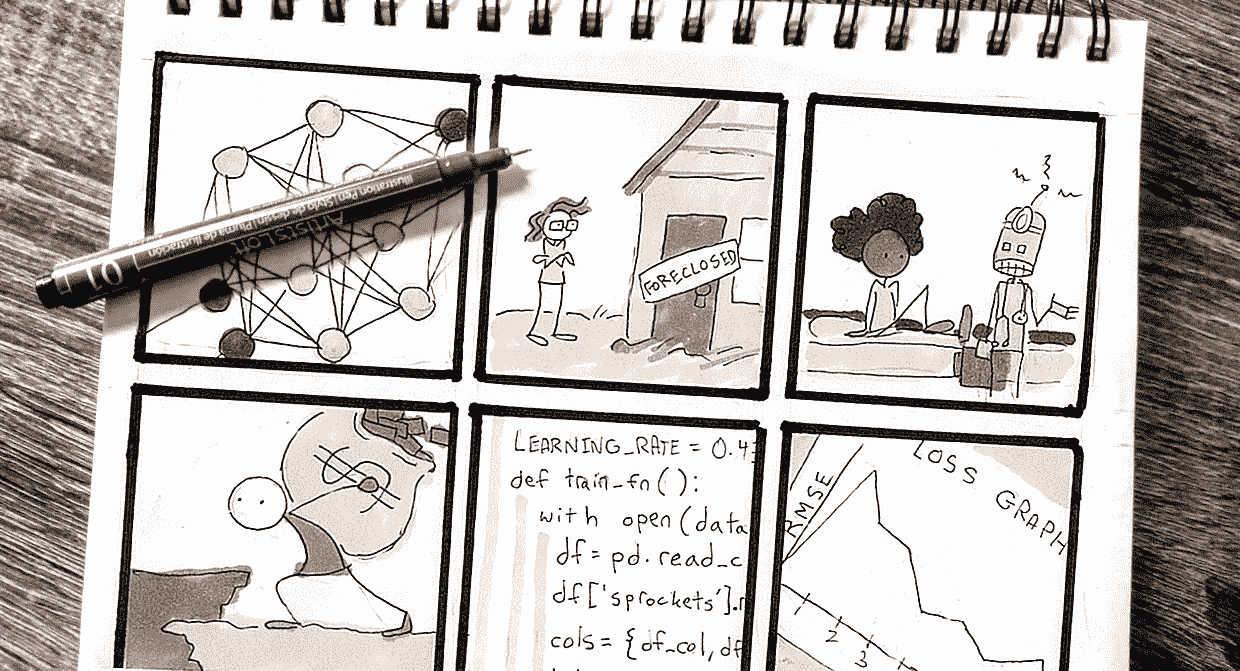 01
Illustration Pen/Stylo de dessin/Pluma de Ilustración
Artist's Loft
FORECLOSED
LEARNING_RATE = 0.4
def train_fn():
with open(data
df = pd.read_c
df['sprockets'].r
cols = {df_col, df
LOSS GRAPH
RMSE
2
3